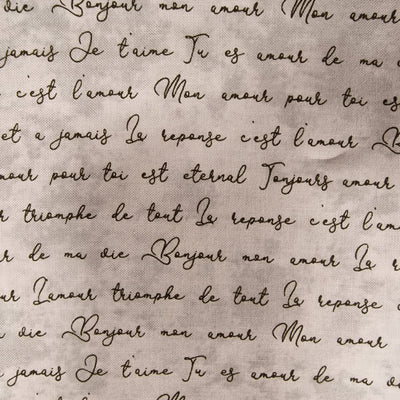 die Bonjour mon amour Mon amour
jamais Je t'aime Tu es amour de ma
c'est l'amour Mon amour pour toi es
et a jamais La reponse c'est l'amour B
mour pour toi est eternal Tonjours amour
r triomphe de tout La reponse c'est l'am
r de ma die Bonjour mon amour La r
ur L'amour triomphe de tout La reponse
die Bonjour mon amour Mon amour
jamais Je t'aime Tu es amour de ma